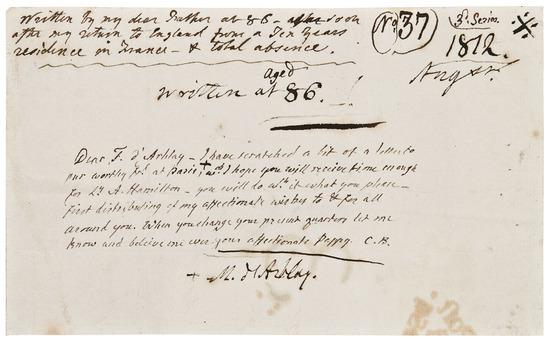 Written by my dear Father at 86 - after soon
after my return to England from a Ten Years
residence in France - & total absence.
No. 37
3d. Series.
1812.
August.
aged
Written at 86.
Dear F. d'Arblay - I have scratched a bit of a letter to
our worthy frd. at Paris, I hope you will receive time enough
for Ly A. Hamilton - you will do wth. it what you please -
First distributing of my affectionate wishes to & for all
around you. When you change your present quarters let me
know and believe me ever your affectionate Peppy. C.B.
+ M. d'Arblay.